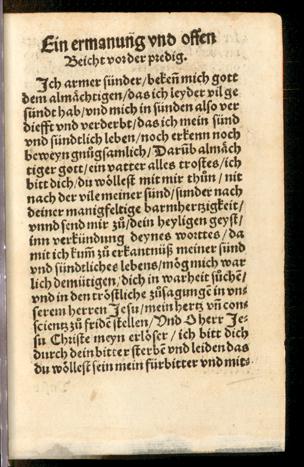 Ein ermanung vnd offen
Beicht vor der predig.
Ich armer sünder/beken̄ mich gott
dem almächtigen/das ich leyder vil ge
sündt hab/vnd mich in sünden also ver
diefft vnd verderbt/das ich mein sünd
vnd sündtlich leben/noch erkenn noch
beweyn gnůgsamlich/Darūb almäch
tiger gott/ein vatter alles trostes/ich
bitt dich/du wöllest mit mir thůn/nit
nach der vile meiner sünd/sunder nach
deiner manigfeltige barmhertzigkeit/
vnnd send mir zů/dein heyligen geyst/
inn verkündung deynes worttes/da
mit ich kum̄ zů erkantnüß meiner sünd
vnd sündtliches lebens/mög mich war
lich demütigen/dich in warheit sůchē/
vnd in den tröstliche zůsagungē in vn⸗
serem herren Jesu/mein hertz vn̄ con⸗
scientz zů fridē stellen/Vnd O herr Je⸗
su Christe meyn erlöser/ich bitt dich
durch dein bitter sterbē vnd leiden das
du wöllest sein mein fürbitter vnd mit⸗